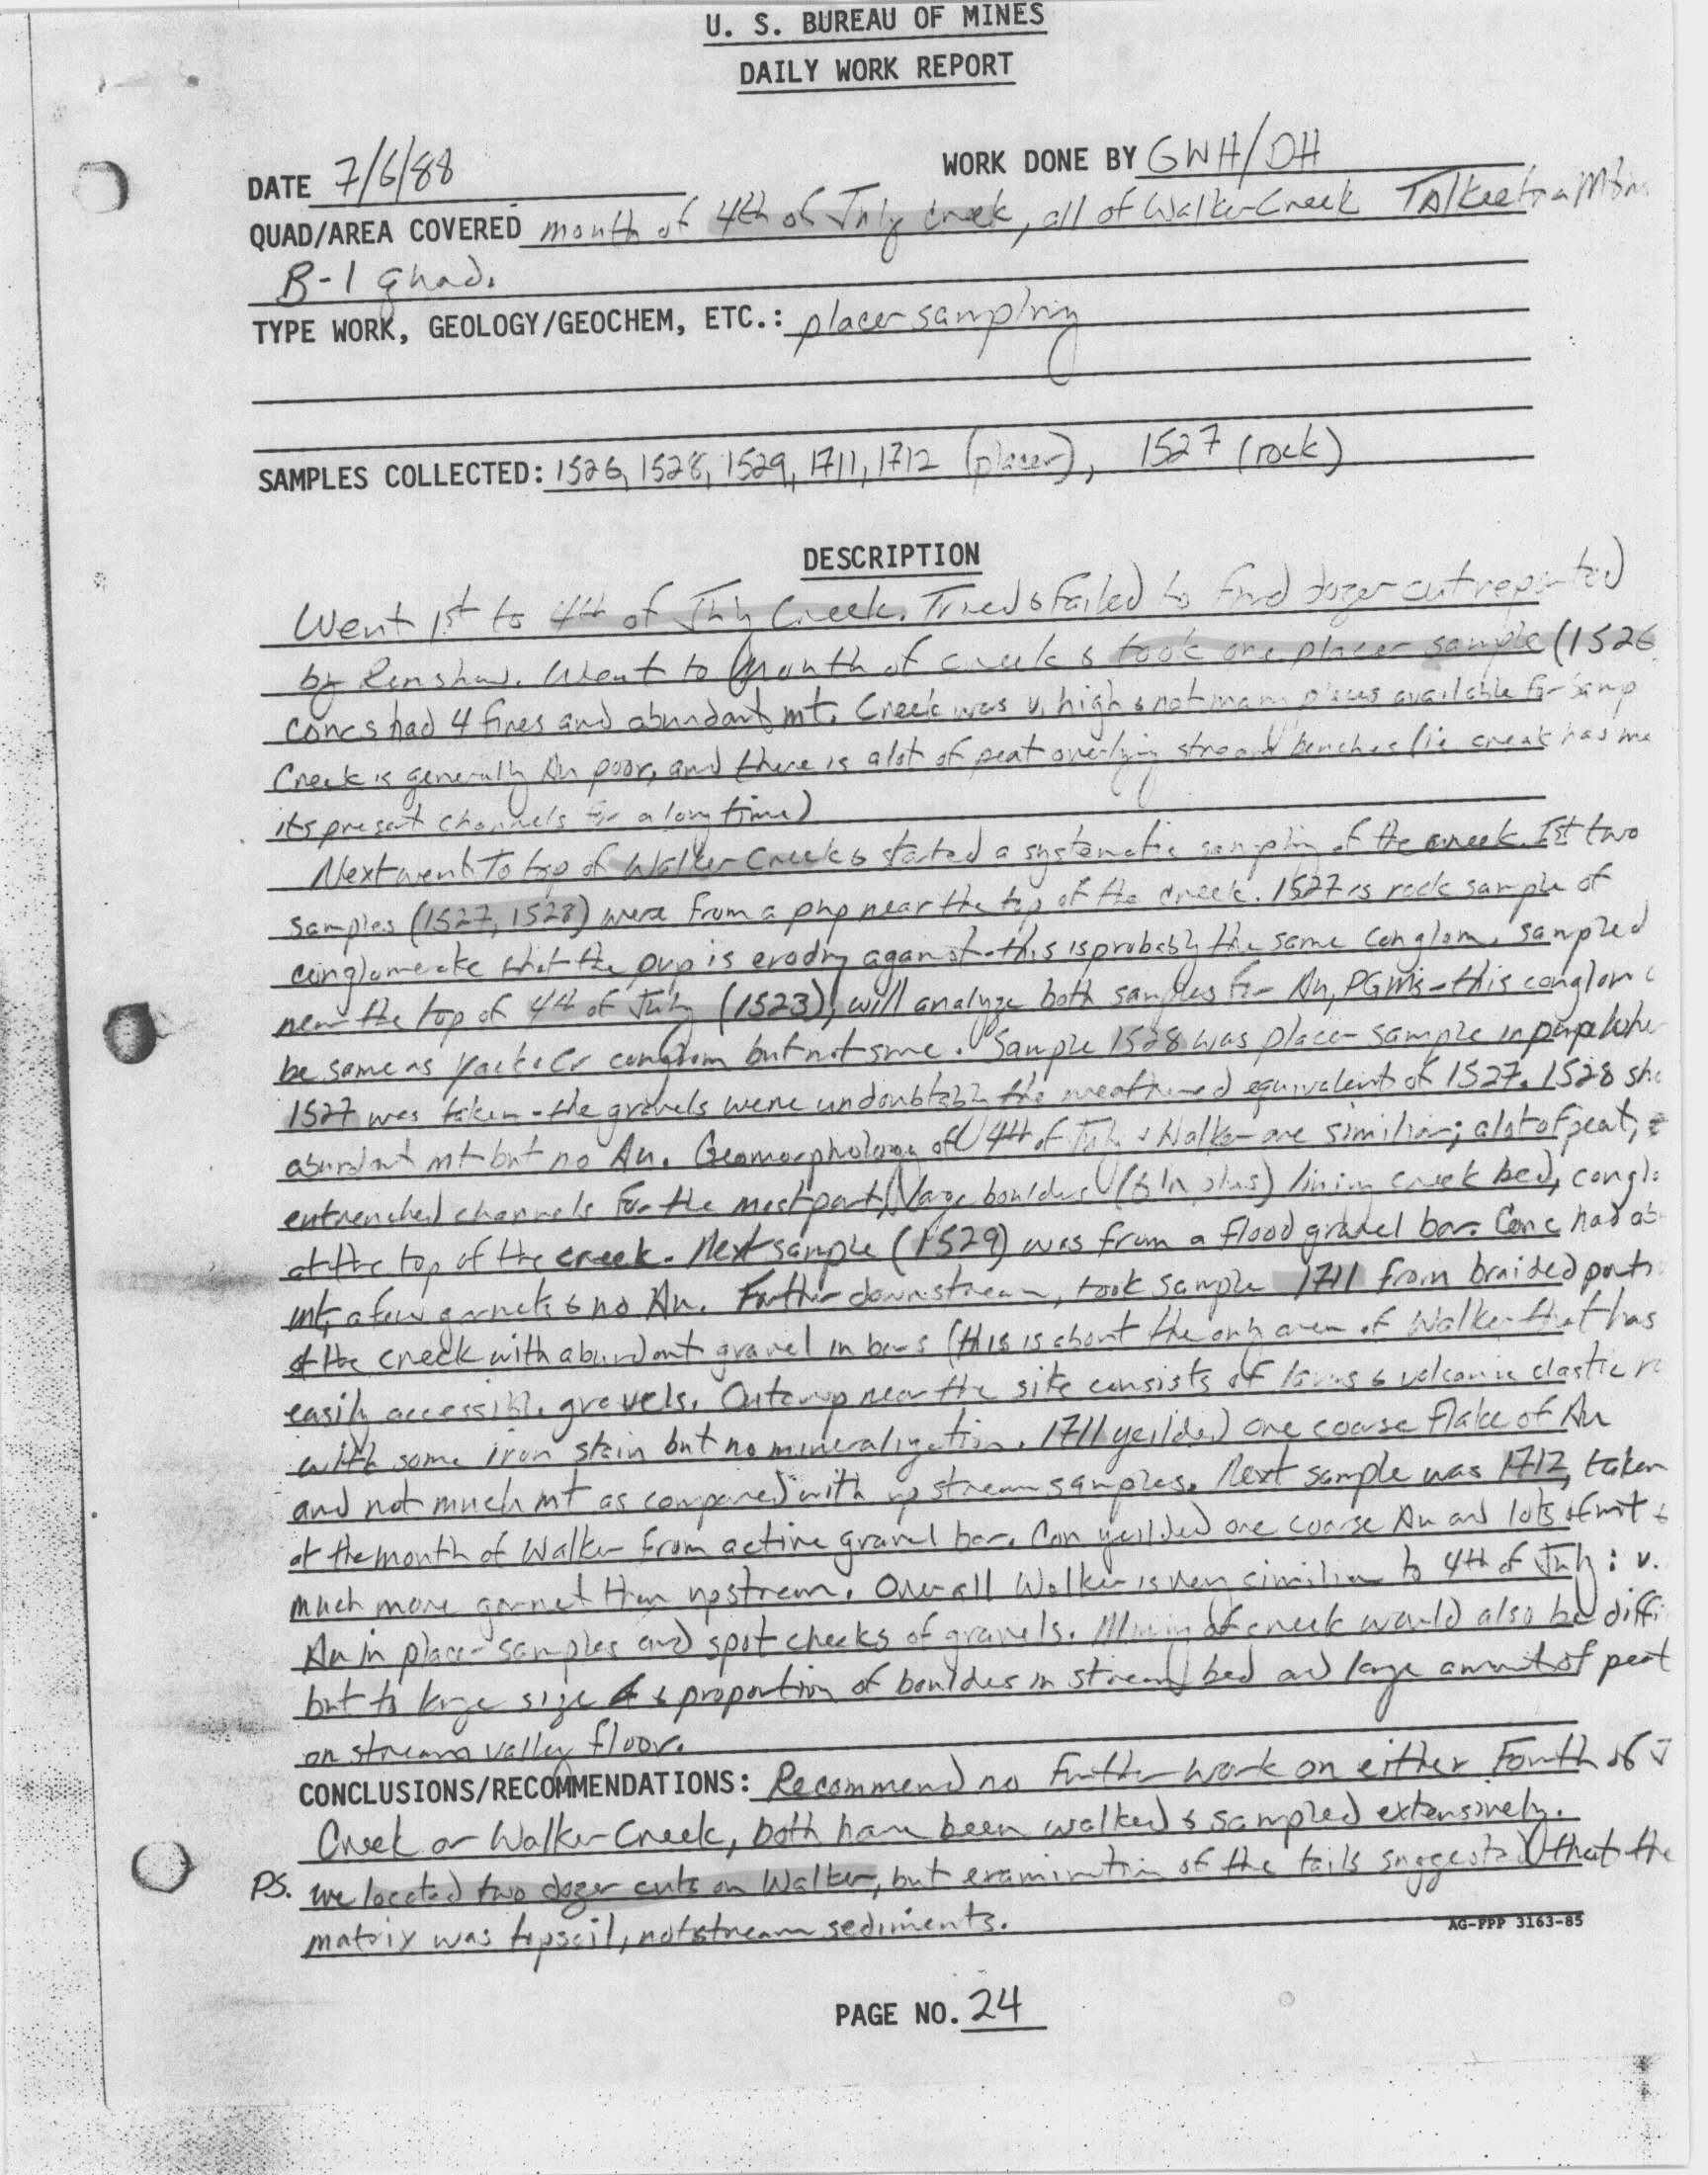 U. S. BUREAU OF MINES
DAILY WORK REPORT
DATE 7/6/88 WORK DONE BY GWH/DH
QUAD/AREA COVERED mouth of 4th of July Creek, all of Walker Creek Talkeetna Mtns
B-1 quad.
TYPE WORK, GEOLOGY/GEOCHEM, ETC.: placer sampling
SAMPLES COLLECTED: 1526, 1528, 1529, 1711, 1712 (placer), 1527 (rock)
DESCRIPTION
Went 1st to 4th of July Creek. Tried & failed to find dozer cut reported
by Renshaw. Went to mouth of creek & took one placer sample (1526
Concs had 4 fines and abundant mt. Creek was v. high & not many places available for samp
Creek is generally Au poor, and there is alot of peat overlying stream benches (ie creek has
its present channels for a long time)
Next went to top of Walker Creek & started a systematic sampling of the creek. 1st two
samples (1527, 1528) were from a pup near the top of the creek. 1527 is rock sample of
conglomerate that the pup is eroding against - this is probably the same conglom. sampled
near the top of 4th of July (1523); will analyze both samples for Au, PGMs - this conglom
be same as conglom but not sure. Sample 1528 was placer sample in pup
1527 was taken - the gravels were undoubtably the weathered equivalent of 1527. 1528
abundant mt but no Au. Geomorphology of 4th of July & Walker are similiar; alot of peat,
entrenched channels for the most part, large boulders lining creek bed, conglo
at the top of the creek. Next sample (1529) was from a flood gravel bar. Conc had ab
mt, a few garnets & no Au. Further downstream, took sample 1711 from braided
of the creek with abundant gravel in bars (this is about the only area of Walker that has
easily accessible gravels. Outcrop near the site consists of lavas & volcanic clastic
with some iron stain but no mineralization. 1711 yeilded one coarse flake of Au
and not much mt as compared with upstream samples. Next sample was 1712, taken
at the mouth of Walker from active gravel bar. Con yeilded one coarse Au and lots of mt &
much more garnet than upstream. Overall Walker is very similiar to 4th of July: v.
Au in placer samples and spot checks of gravels. Mining of creek would also be diffi
but to large size & proportion of boulders in stream bed and large amount of peat
on stream valley floor.
CONCLUSIONS/RECOMMENDATIONS: Recommend no further work on either Fourth of J
Creek or Walker Creek, both have been walked & sampled extensively.
PS. we located two dozer cuts on Walker, but examination of the tails suggested that the
matrix was topsoil, not stream sediments.
AG-PPP 3163-85
PAGE NO. 24